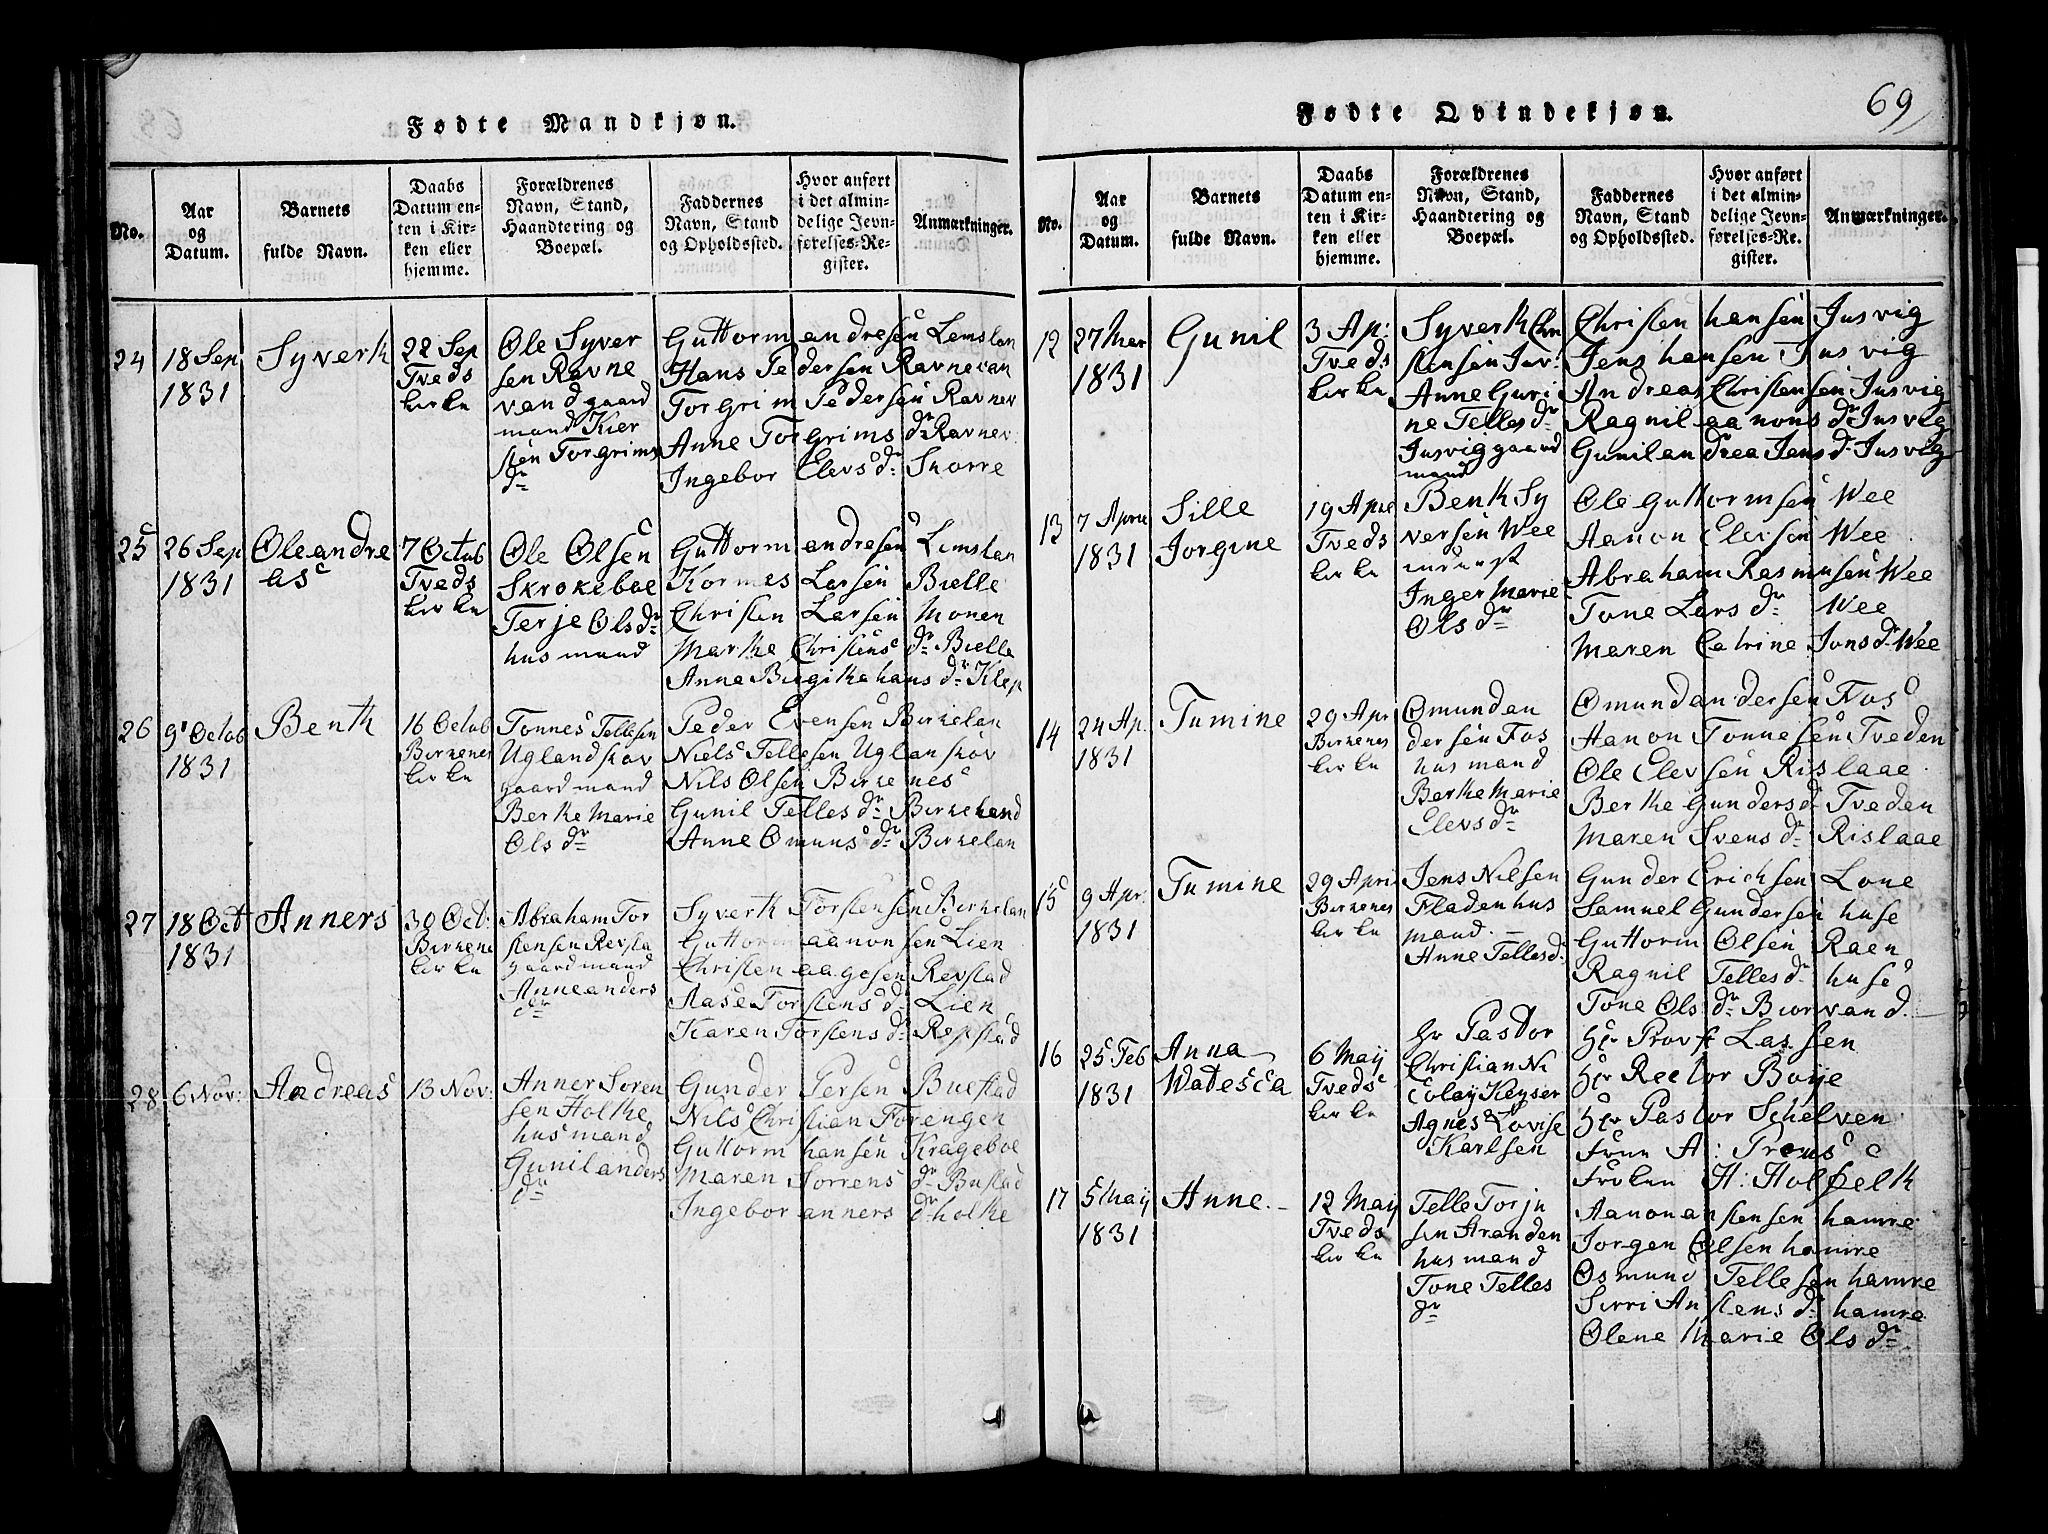 Fødte Mandkjøn.
No.
Aar
og
Datum.
Barnets
fulde Navn.
Daabs
Datum en-
ten i Kir-
ken eller
hjemme.
Forældrenes
Navn, Stand,
Haandtering og
Boepæl.
Faddernes
Navn, Stand
og Opholdssted.
Hvor anført
i det almin-
delige Jevn-
førelses-Re-
gister.
Anmærkninger.
24
18 Sep
1831
Syverk
22 Sep
Tveds
kirke
Ole Syver
sen Ravne
vand gaard
mand Kier
sten Torgrims
dr
Guttorm andresen Lemslan
Hans Pedersen Ravnevan
Torgrim Pedersen Ravnev
Anne Torgrims dr Ravnev
Ingebor Elevs dr Snorre
25
26 Sep
1831
Oleandre
as
7 Octob
Tveds
kirke
Ole Olsen
Skrokeboe
Terje Ols dr
husmand
Guttorm andresen Lemslan
Kormes Larsen Bielle
Christen Larsen Monen
Marthe Christens dr Bielle
Anne Birgithe hans dr Klep
26
9 Octob
1831
Benth
16 Octob
Birkenes
kirke
Tonnes Tellesen
Ugland skov
gaardmand
Berthe Marie
Ols dr
Peder Evensen Birkelan
Niels Tellesen Uglanskov
Nils Olsen Birkenes
Gunil Telles dr Birkeland
Anne Omuns dr Birkelan
27
18 Oct
1831
Anners
30 Oct:
Birkene
kirke
Abraham Tor
stensen Revsta
gaardmand
Anne anders
dr
Syverk Torstensen Birkelan
Guttorm aanonsen Lien
Christen aagesen Revstad
Aase Torstens dr Lien
Karen Torstens dr Repstad
28
6 Nov:
Andreas
13 Nov:
Anner Soren
sen Holthe
husmand
Gunil anders
dr
Gunder Persen Buestad
Nils Christian Forengen
Guttorm hansen Krageboe
Maren Sorrens dr Bustad
Ingebor anners dr holthe
Fødte Qvindekjøn.
69
No.
Aar
og
Datum.
Barnets
fulde Navn.
Daabs
Datum en-
ten i Kir-
ken eller
hjemme.
Forældrenes
Navn, Stand,
Haandtering og
Boepæl.
Faddernes
Navn, Stand
og Opholdssted.
Hvor anført
i det almin-
delige Jevn-
førelses-Re-
gister.
Anmærkninger.
12
27 Mar
1831
Gunil
3 Ap:
Tveds
kirke
Syverk Chri
stensen Jus
Anne Guri
ne Telles dr
Jusvig gaard
mand
Christen hansen Jusvig
Jens hansen Jusvig
Andreas Christensen Jusvig
Ragnil aanons dr Jusvig
Gunil andrea Jens dr Jusvig
13
7 April
1831
Sille
Jorgine
19 Apre
Tveds
kirke
Benth Sy
versen Wee
Inger Marie
Ols dr
Ole Guttormsen Wee
Aanon Elevsen Wee
Abraham Rasmusen Wee
Tone Lars dr Wee
Maren Catrine Jons dr Wee
14
24 Ap.
1831
Tumine
29 Apr
Birkenes
kirke
Omund an
dersen Fos
husmand
Berthe Marie
Elevs dr
Omund andersen Fos
Aanon Tonnesen Tveden
Ole Elevsen Rislaae
Berthe Gunders d Tveden
Maren Svens dr Rislaae
15
9 Apr.
1831
Tumine
29 Apri
Birkenes
kirke
Jens Nilsen
Fladen hus
mand. —
Anne Telles d:
Gunder Erichsen Lone
Samuel Gundersen huse
Guttorm Olsen Raen
Ragnil Telles dr huse
Tone Ols dr Biorvand.
16
25 Feb
1831
Anna
Wadesca
6 May
Tveds
kirke
Hr Pastor
Christian Ni
colay Keyser
Agnes Lovise
Karlsen
Hr Provst Lassen
Hr Rector Boye
Hr Pastor Schelven
Frue A: Prems
Frøken H: Holfelt
17
5 May
1831
Anne. -
12 May
Tveds
kirke
Telle Torju
sen Stranden
husmand
Tone Telles
dr
Aanon anstensen hamre
Jorgen Olsen hamre
Osmund Tellesen hamre
Sirri Anstens dr hamre
Olene Marie Ols dr